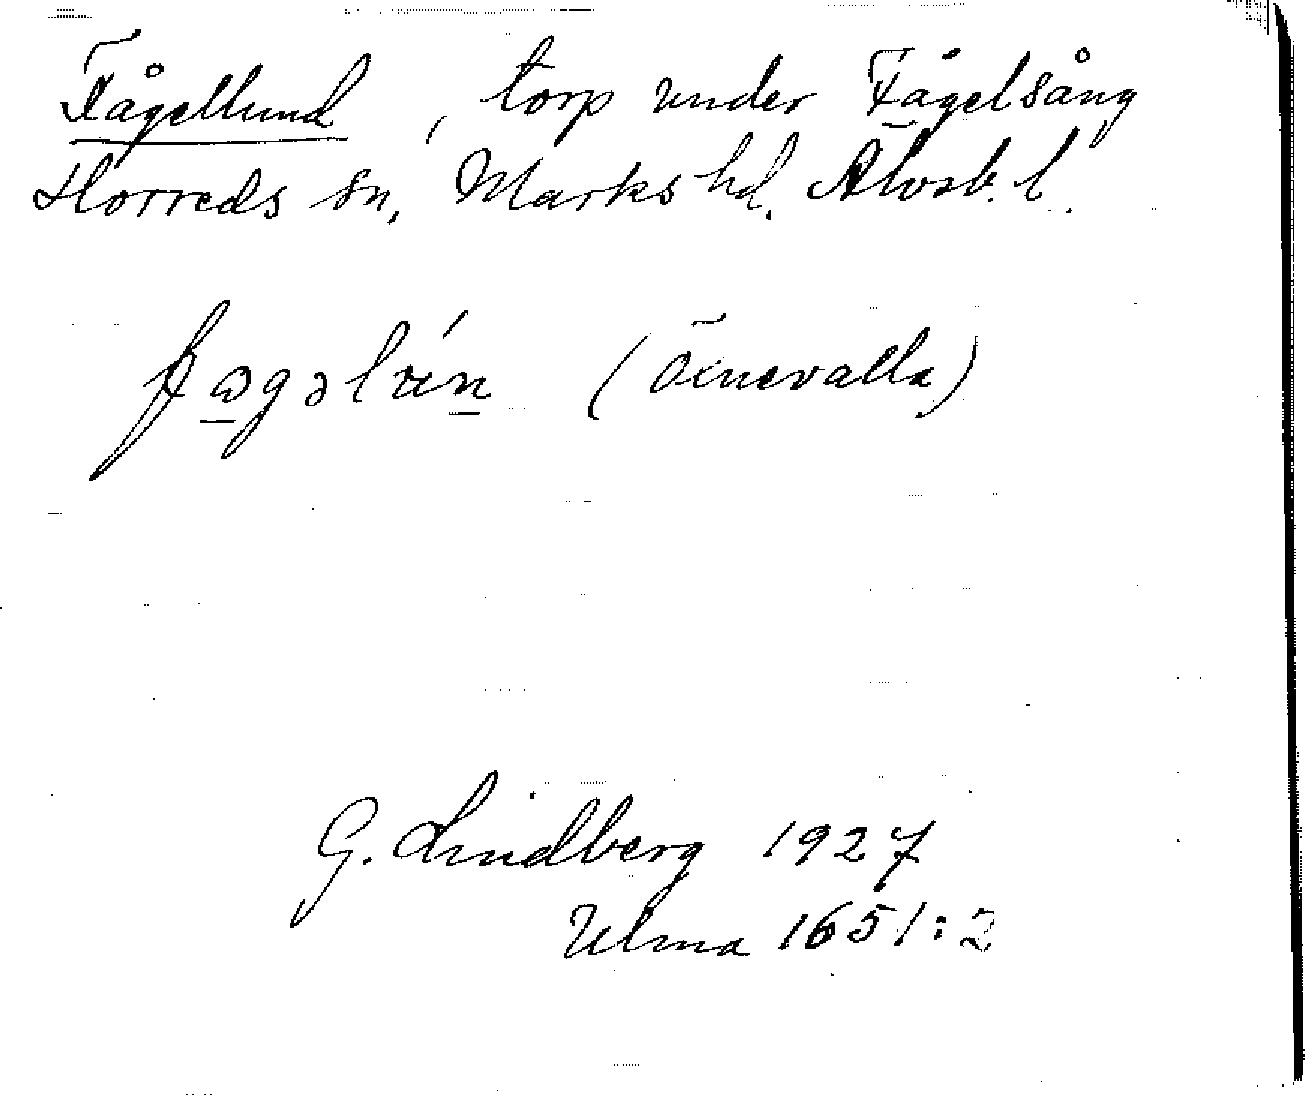 Fågellund, torp under Fågelsång
Horreds sn, Marks hd. Älvsb. l.
(Öxnevalla)
G. Lindberg 1927
Ulma 1651:2